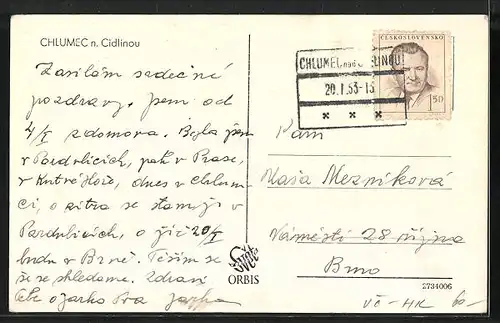 CHLUMEC n. Cidlinou
Zasílám srdečné
pozdravy. Jsem od
4/I z domova. Byla jsem
v Pardubicích, pak v Praze,
v Kutné Hoře, dnes v Chlum-
ci, o zítra se stavuji v
Pardubicích, a již 20/I
budu v Brně. Těším se
že se shledáme. Zdraví
Tebe
ČESKOSLOVENSKO
1,50
CHLUMEC nad CIDLINOU
20.1.53-13
× × ×
Paní
Máša Mezníková
Náměstí 28 října
Brno
Svět
ORBIS
2734006
VČ-HK 60-